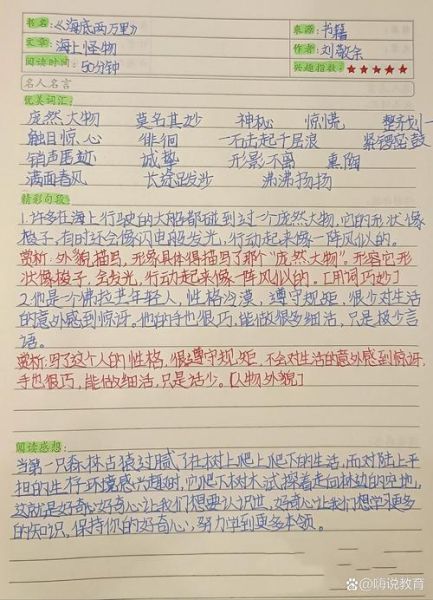 书名:《海底两万里》 来源:书籍
文章:海上怪物 作者:刘敬余
阅读时间:50分钟 兴趣指数:★★★★★
名人名言
优美词汇:
庞然大物 莫名其妙 神秘 惊慌 整齐划一
触目惊心 徘徊 一石击起千层浪 紧锣密鼓
销声匿迹 诚挚 形影不离 熏陶
满面春风 长途跋涉 沸沸扬扬
精彩句段
1.许多在海上行驶的大船都碰到过一个庞然大物,它的形状像
梭子,有时还会像闪电般发光,行动起来像一阵风似的。
赏析:外貌描写,形象具体得描写了那个"庞然大物"。形容它形
状像梭子,会发光,行动起来像一阵风似的。[用词巧妙]
2.他是个佛拉芒年轻人,性格冷漠,遵守规矩,很少对生活
的意外感到惊讶。他的手也很巧,能做很多细活,只是极少言
语。
赏析:写了这个人的性格,很遵守规矩,不会对生活的意外感到惊讶,
手也很巧,能做细活,只是话少。[人物外貌]
阅读感想:
当第一只森林古猿过腻了在树上爬上爬下的生活,而对陆上平
担的生存环境感兴趣时,它爬下树木试探着走向林边的空地,
这就是好奇心好奇心让我们想要认识世,好奇心让我们想学更多
的知识,保持你的好奇心,努力学到更多本领。
@嗨说教育